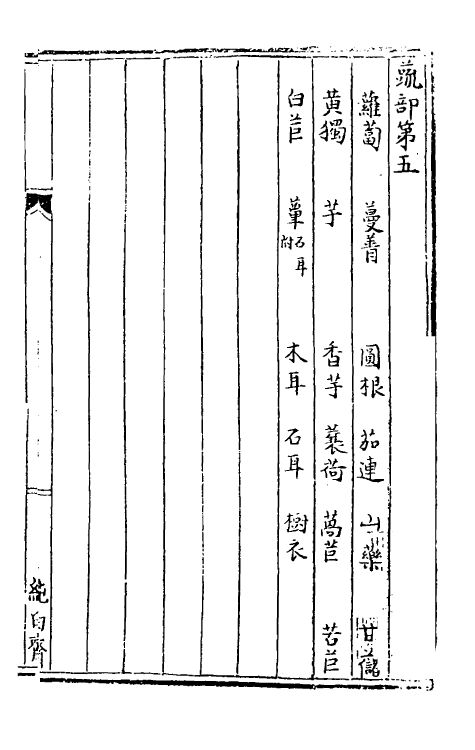 蔬部第五
蘿蔔 蔓菁 圓根 茄連 山藥 甘藷
黃獨 芋 香芋 蘘荷 萵苣 苦苣
白苣 蕈石耳附 木耳 石耳 樹衣
純白齋